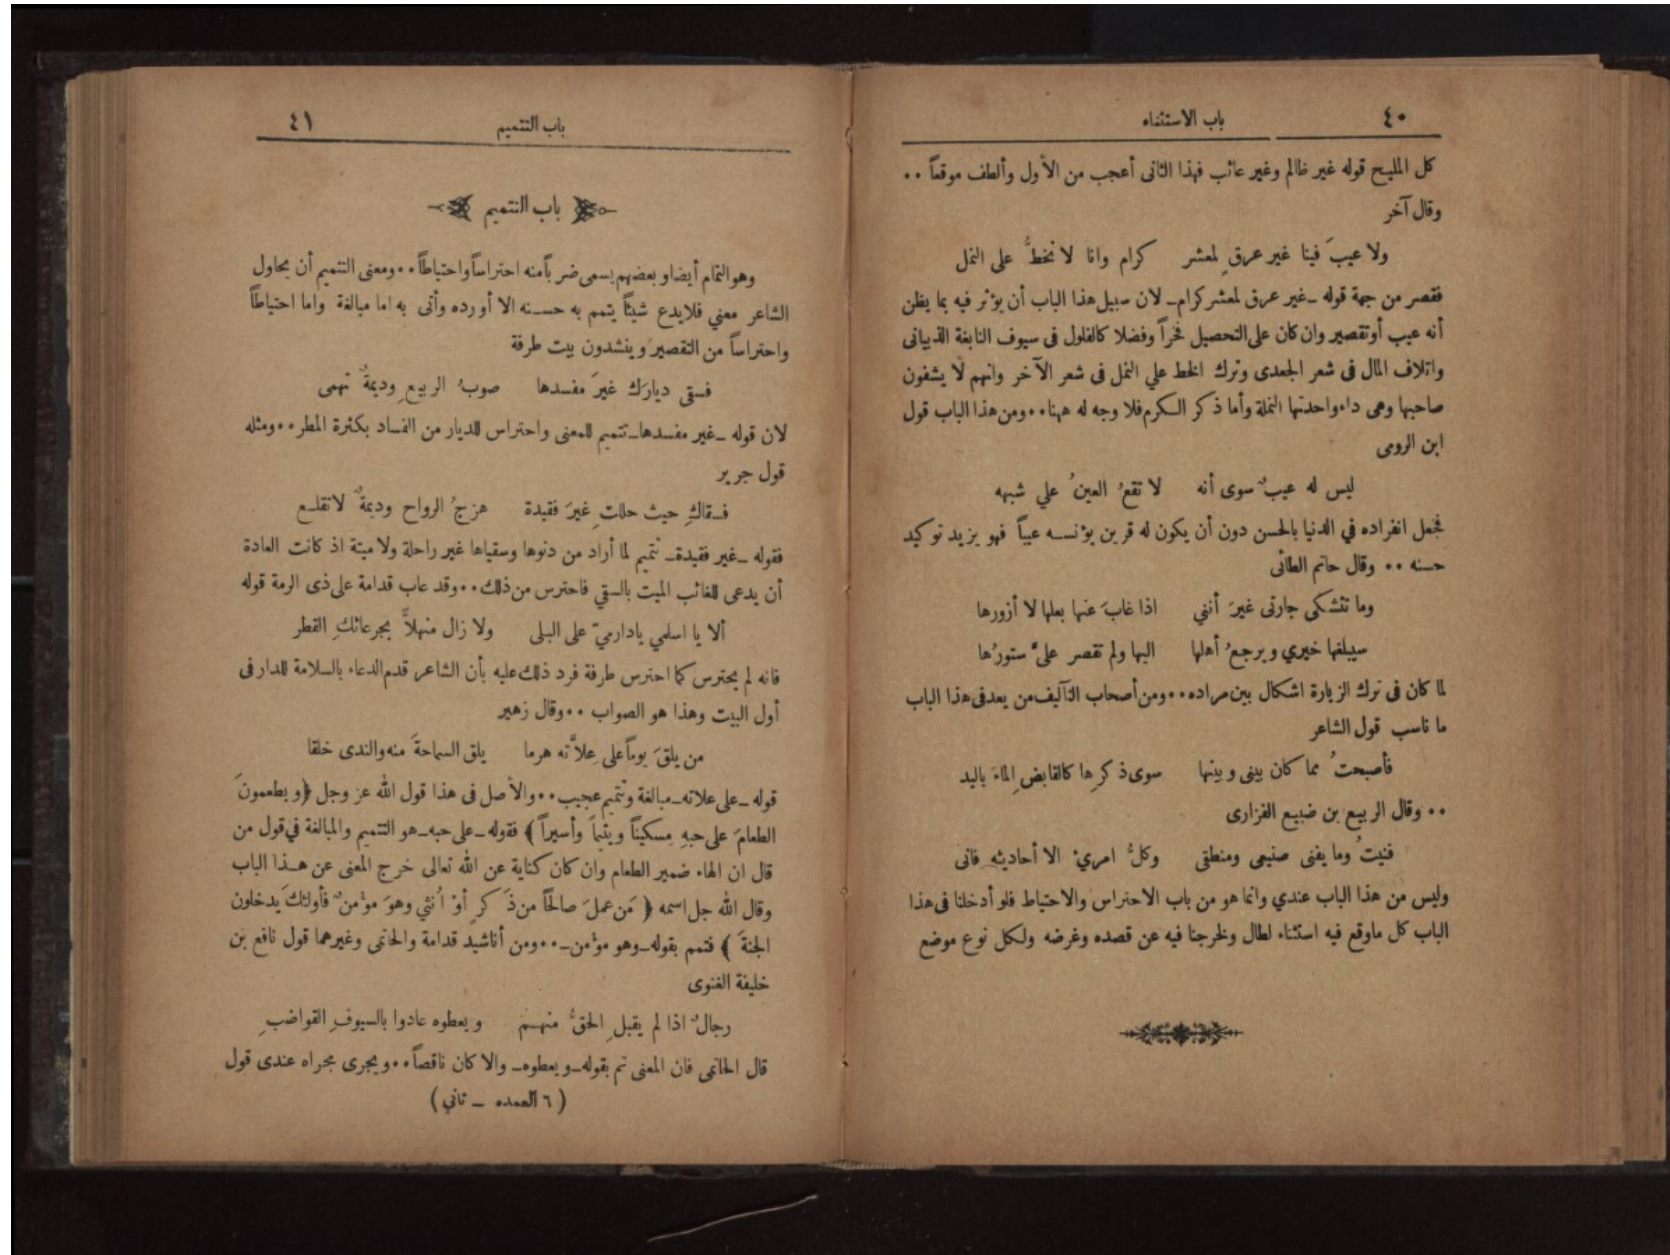 ٤٠ باب الاستثناء
كل المليح قوله غير ظالم وغير عائب فهذا الثانى أعجب من الأول وألطف موقعاً ٠٠
وقال آخر
ولا عيبَ فينا غير عرقٍ لمعشر كرام وانا لا نخطُّ على النمل
فقصر من جهة قوله ـ غير عرق لمعشر كرام ـ لان سبيل هذا الباب أن يؤتر فيه بما يظن
أنه عيب أو تقصير وان كان على التحصيل نخراً وفضلا كالفلول فى سيوف النابغة الذبيانى
واتلاف المال فى شعر الجعدى وترك الخط علي النمل فى شعر الآخر وانهم لا يشفون
صاحبها وهى داء واحدتها النملة وأما ذكر الكرم فلا وجه له ههنا ٠٠ ومن هذا الباب قول
ابن الرومى
ليس له عيبٌ سوى أنه لا تقعُ العينُ علي شبهه
فجعل انفراده في الدنيا بالحسن دون أن يكون له قرين يؤنسه عيباً فهو يزيد توكيد
حسنه ٠٠ وقال حاتم الطائى
وما تتشكى جارتى غيرَ أنني اذا غابَ عنها بعلها لا أزورها
سيبلغها خيري ويرجعُ أهلها اليها ولم تقصر علىّ ستورُها
لما كان فى ترك الزيارة اشكال بين مراده ٠٠ ومن أصحاب التآليف من يعد فى هذا الباب
ما ناسب قول الشاعر
فأصبحتُ مما كان بينى وبينها سوى ذكرِها كالقابضِ الماءَ باليد
٠٠ وقال الربيع بن ضبيع الفزارى
فنيتُ وما يفنى صنيعى ومنطقى وكلُّ امريءٍ الا أحاديثه فانى
وليس من هذا الباب عندي وانما هو من باب الاحتراس والاحتياط فلو أدخلنا فى هذا
الباب كل ماوقع فيه استثناء لطال ولخرجنا فيه عن قصده وغرضه ولكل نوع موضع
باب التتميم ٤١
باب التتميم
وهو التمام أيضاً وبعضهم يسمى ضرباً منه احتراساً واحتياطاً ٠٠ ومعنى التتميم أن يحاول
الشاعر معني فلايدع شيئاً يتمم به حسنه الا أورده وأتى به اما مبالغة واما احتياطاً
واحتراساً من التقصير وينشدون بيت طرفة
فسقى ديارَك غيرَ مفسدها صوبُ الربيعِ وديمةٌ تهمى
لان قوله ـ غير مفسدها ـ تتميم للمعنى واحتراس للديار من الفساد بكثرة المطر ٠٠ ومثله
قول جرير
فسقاكِ حيث حللتِ غيرَ فقيدة هزجُ الرواح وديمةٌ لاتقلع
فقوله ـ غير فقيدة ـ تتميم لما أراد من دنوها وسقياها غير راحلة ولا ميتة اذ كانت العادة
أن يدعى للغائب الميت بالسقي فاحترس من ذلك ٠٠ وقد عاب قدامة على ذى الرمة قوله
ألا يا اسلمي يادارميّ على البلى ولا زال منهلاًّ بجرعائكِ القطر
فانه لم يحترس كما احترس طرفة فرد ذلك عليه بأن الشاعر قدم الدعاء بالسلامة للدار فى
أول البيت وهذا هو الصواب ٠٠ وقال زهير
من يلقَ يوماً على عِلاَّته هرما يلق السماحةَ منه والندى خلقا
قوله ـ على علاته ـ مبالغة وتتميم عجيب ٠٠ والأصل فى هذا قول الله عز وجل ﴿ ويطعمونَ
الطعامَ على حبهِ مِسكيناً ويتيماً وأسيراً ﴾ فقوله ـ على حبه ـ هو التتميم والمبالغة في قول من
قال ان الهاء ضمير الطعام وان كان كناية عن الله تعالى خرج المعنى عن هذا الباب
وقال الله جل اسمه ﴿ مَن عملَ صالحاً من ذَكرٍ أوْ اُنثي وهوَ مؤمنٌ فأولئكَ يدخلون
الجنةَ ﴾ فتمم بقوله ـ وهو مؤمن ـ ٠٠ ومن أناشيد قدامة والحاتمى وغيرهما قول نافع بن
خليفة الغنوى
رجالٌ اذا لم يقبلِ الحقُّ منهم ويعطوه عادوا بالسيوفِ القواضبِ
قال الحاتمى فان المعنى تم بقوله ـ ويعطوه ـ والا كان ناقصاً ٠٠ ويجرى مجراه عندى قول
( ٦ العمده ـ ثاني )